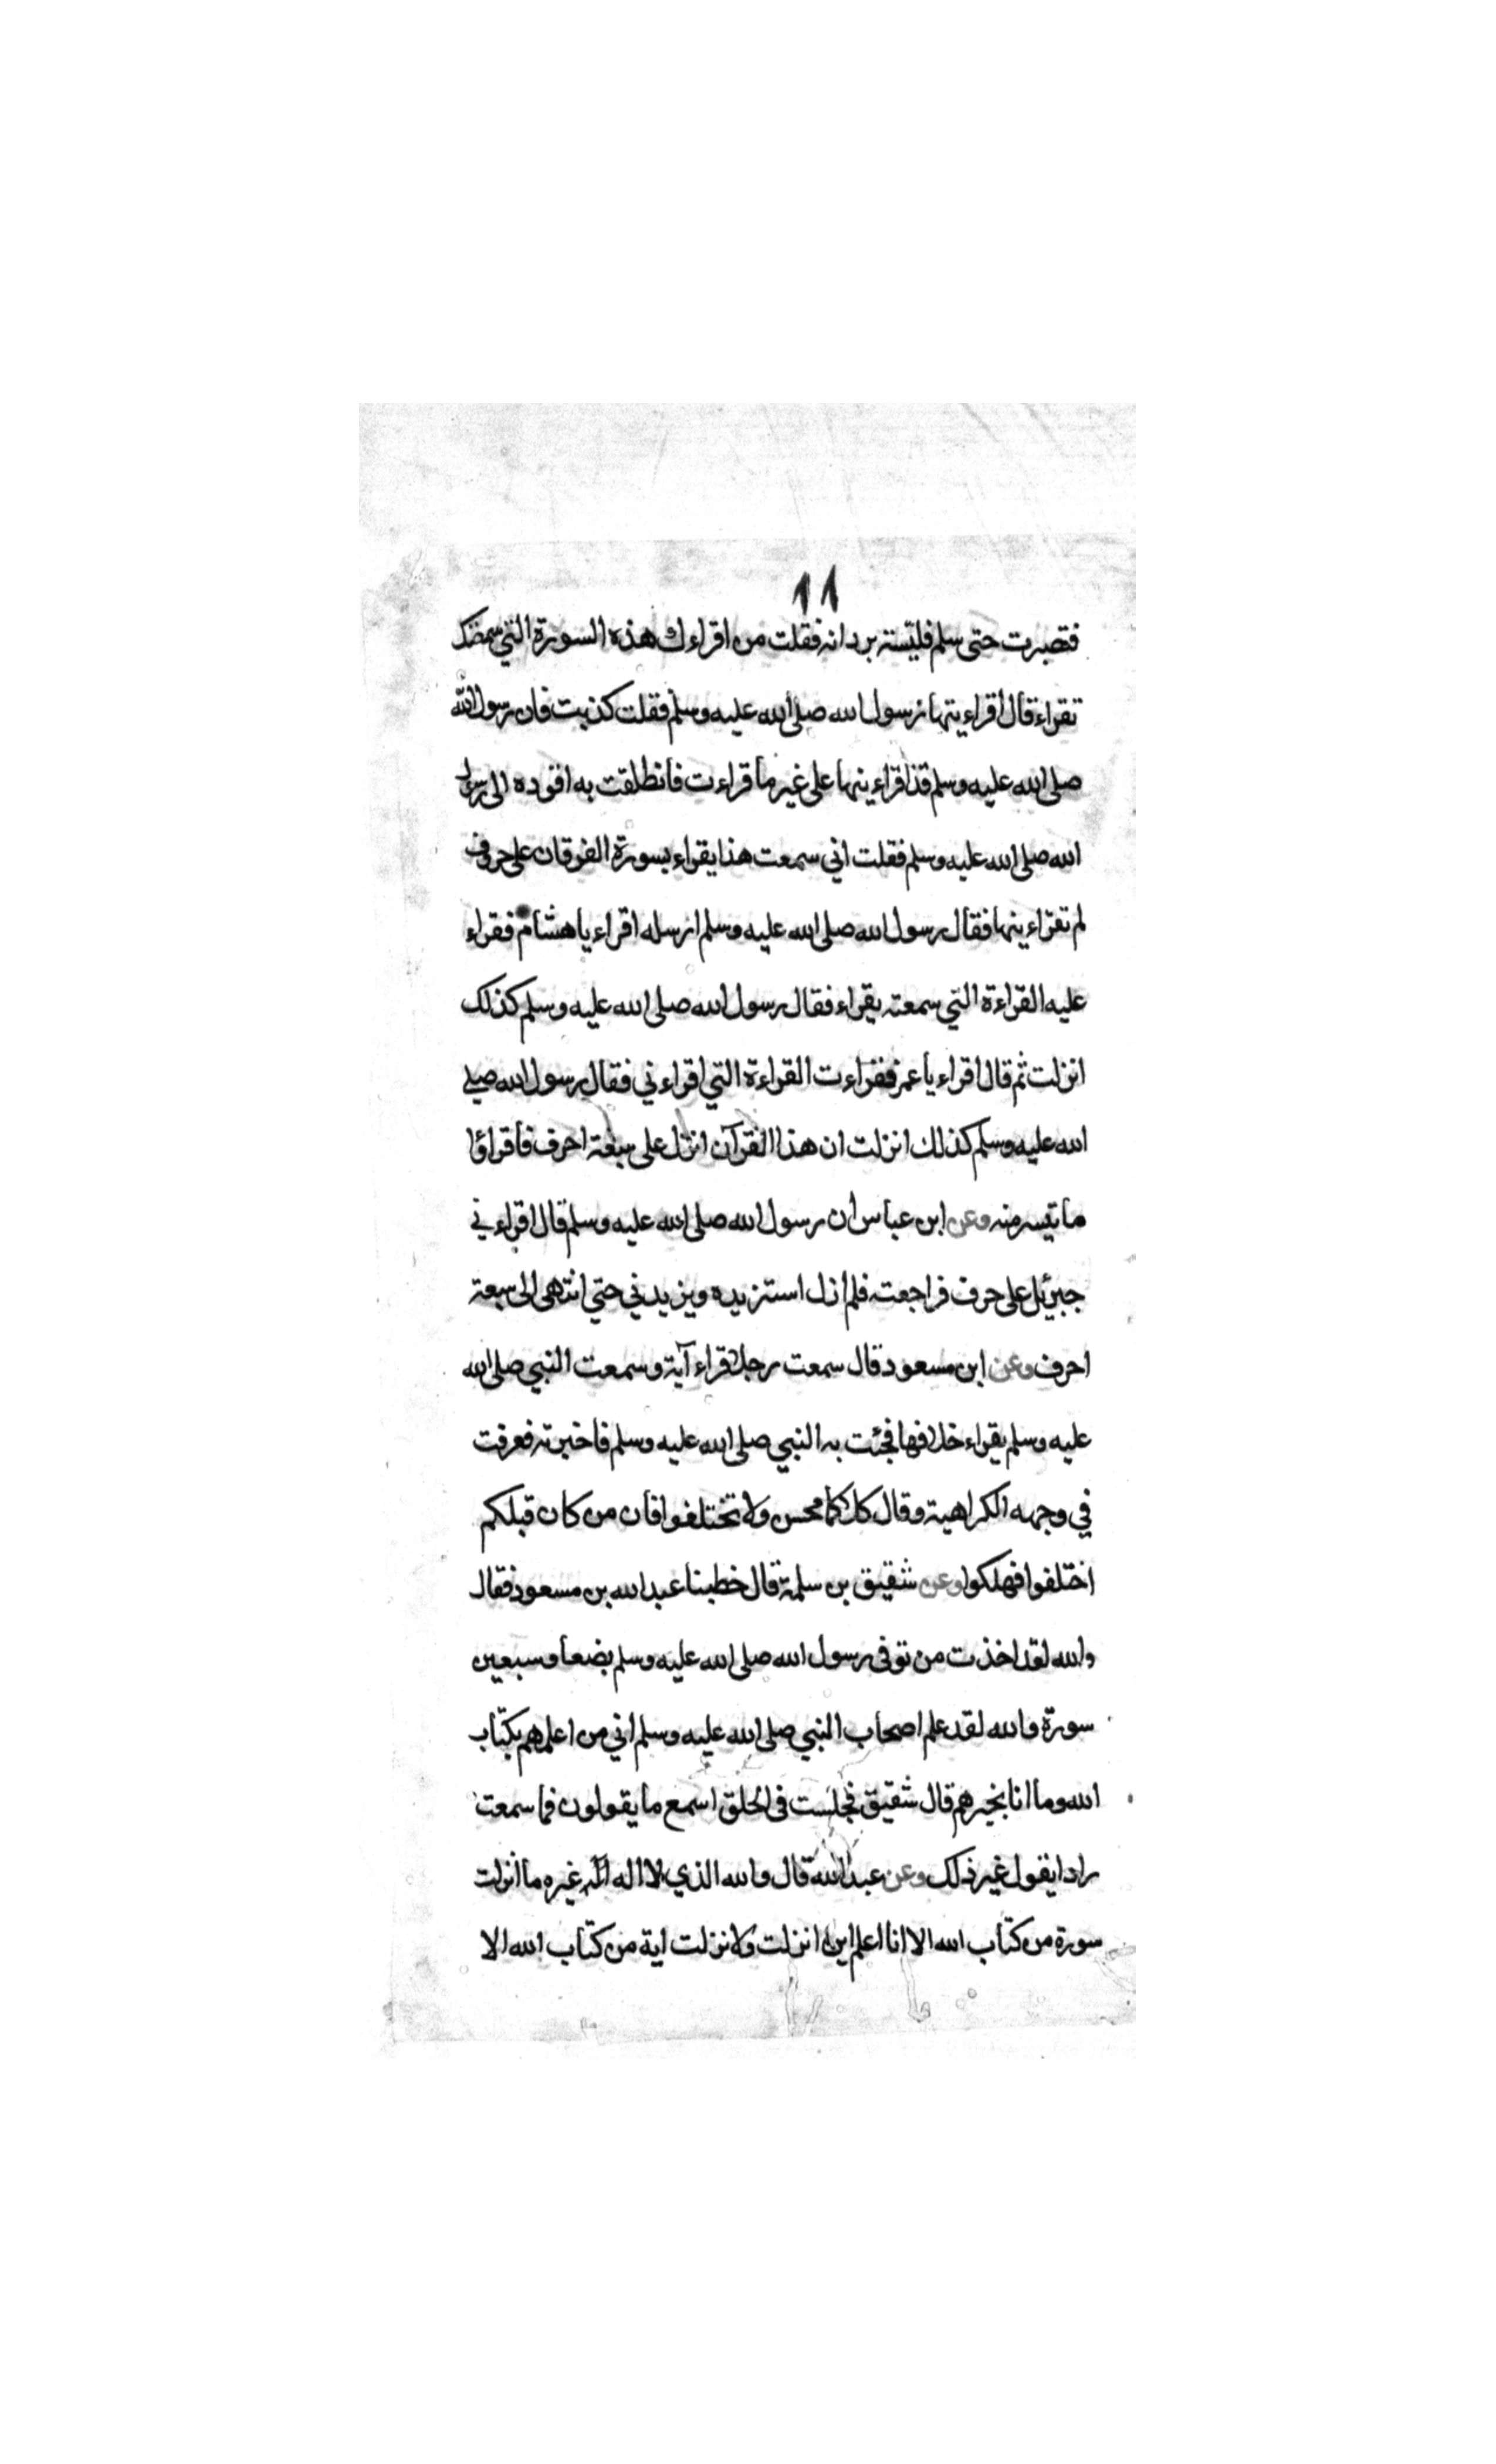 ١١
فتصبرت حتى سلم فلبتسته بردائه فقلت من اقراءك هذه السورة التي سمعتك
تقراء قال اقراءيتها رسول الله صلى الله عليه وسلم فقلت كذبت فان رسول الله
صلى الله عليه وسلم قد اقراءينها على غير ما قراءت فانطلقت به اقوده الى رسول
الله صلى الله عليه وسلم فقلت اني سمعت هذا يقراء بسورة الفرقان على حروف
لم تقراءينها فقال رسول الله صلى الله عليه وسلم ارسله اقراء يا هشام فقراء
عليه القراءة التي سمعته يقراء فقال رسول الله صلى الله عليه وسلم كذلك
انزلت ثم قال اقراء يا عمر فقراءت القراءة التي اقراءني فقال رسول الله صلى
الله عليه وسلم كذلك انزلت ان هذا القرآن انزل على سبعة احرف فاقراؤا
ما تيسر منه وعن ابن عباس ان رسول الله صلى الله عليه وسلم قال اقراءني
جبرئيل على حرف فراجعته فلم ازل استزيده ويزيدني حتي انتهى الى سبعة
احرف وعن ابن مسعود قال سمعت رجلا قراء آية وسمعت النبي صلى الله
عليه وسلم يقراء خلافها فجئت به النبي صلى الله عليه وسلم فاخبرته فعرفت
في وجهه الكراهية وقال كلاكما محسن ولا تختلفوا فان من كان قبلكم
اختلفوا فهلكوا وعن شقيق بن سلمة قال خطبنا عبد الله بن مسعود فقال
والله لقد اخذت من توفى رسول الله صلى الله عليه وسلم بضعا وسبعين
سورة والله لقد علم اصحاب النبي صلى الله عليه وسلم اني من اعلمهم بكتاب
الله وما انا بخيرهم قال شقيق فجلست في الحلق اسمع ما يقولون فما سمعت
رادا يقول غير ذلك وعن عبد الله قال والله الذي لا اله غيره ما انزلت
سورة من كتاب الله الا انا اعلم اين انزلت ولا نزلت اية من كتاب الله الا